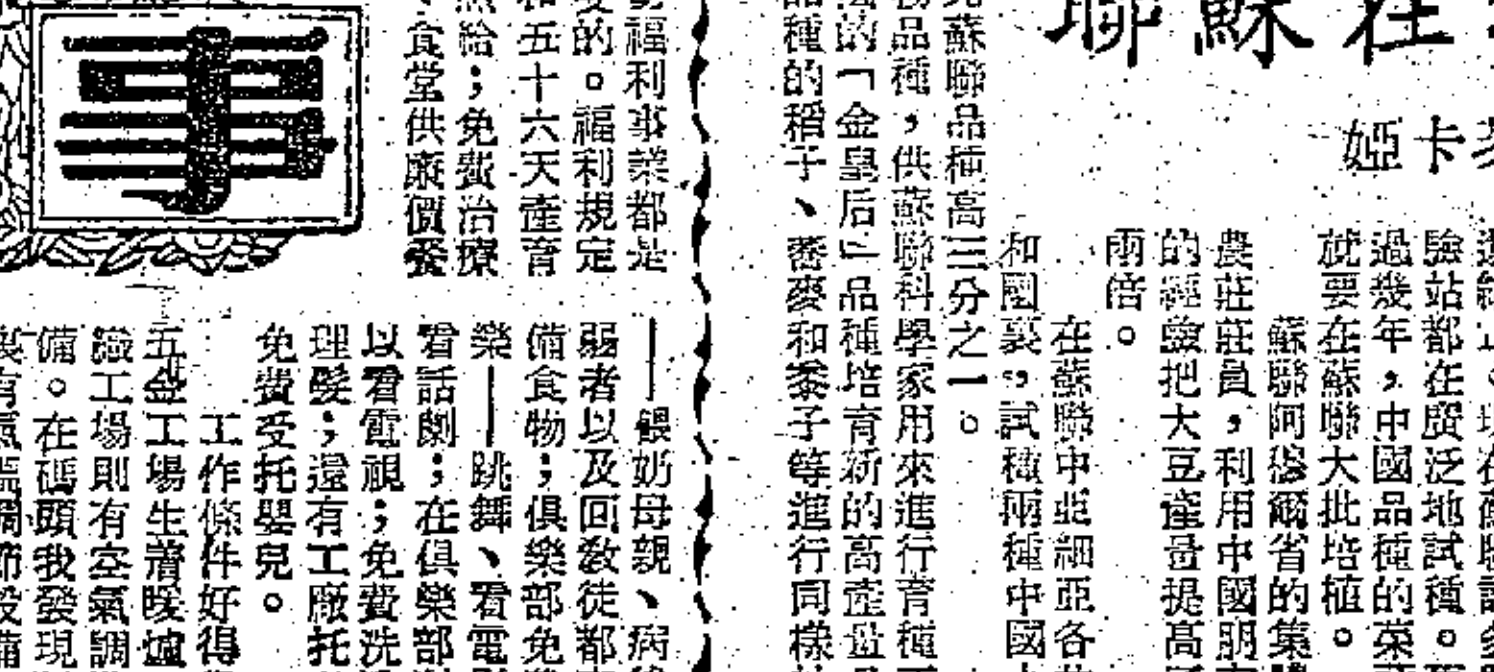 聯蘇在
婭卡
驗站都在廣泛地試種。
過幾年，中國品種的菜
就要在蘇聯大批培植。
蘇聯阿穆爾省的集
農莊莊員，利用中國朋
的經驗把大豆產量提高
兩倍。
在蘇聯中亞細亞各
和國裏，試種兩種中國
蘇聯品種高三分之一。
品種，供蘇聯科學家用來進行育種
的「金皇后」品種培育新的高產
品種的稻子、蕎麥和黍子等進行同樣
福利事業都是
的。福利規定
和五十六天產育
給；免費治療
食堂供廉價餐
——餵奶母親、病
弱者以及回教徒都
備食物；俱樂部免
樂——跳舞、看電
看話劇；在俱樂部
以看電視；免費洗
理髮；還有工廠托
免費受托嬰兒。
工作條件好得
五金工場生着暖爐
工場則有空氣調
備。在碼頭我發現
有
事